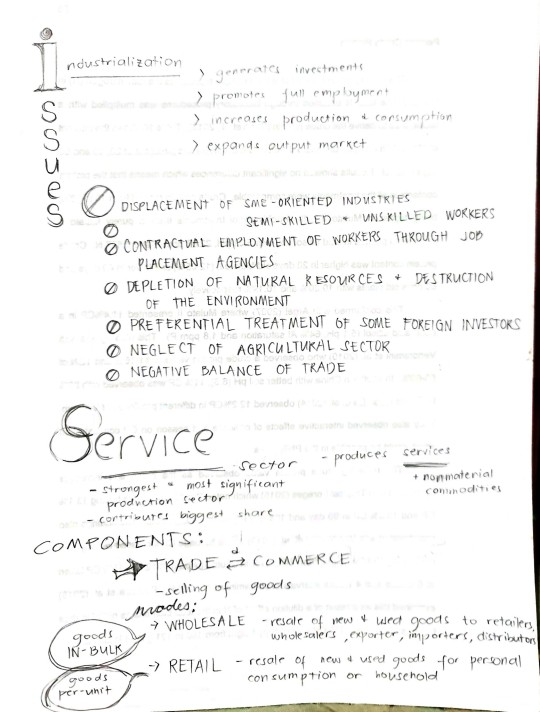 industrialization
> generates investments
> promotes full employment
> increases production & consumption
> expands output market
issues
DISPLACEMENT OF SME-ORIENTED INDUSTRIES
SEMI-SKILLED & UNSKILLED WORKERS
CONTRACTUAL EMPLOYMENT OF WORKERS THROUGH JOB
PLACEMENT AGENCIES
DEPLETION OF NATURAL RESOURCES & DESTRUCTION
OF THE ENVIRONMENT
PREFERENTIAL TREATMENT OF SOME FOREIGN INVESTORS
NEGLECT OF AGRICULTURAL SECTOR
NEGATIVE BALANCE OF TRADE
Service
sector
- produces services
+ nonmaterial
commodities
- strongest & most significant
production sector
- contributes biggest share
COMPONENTS:
TRADE & COMMERCE
- selling of goods
modes:
→ WHOLESALE - resale of new & used goods to retailers,
wholesalers, exporter, importers, distributors
goods
IN-BULK
→ RETAIL - resale of new & used goods for personal
consumption or household
goods
per-unit